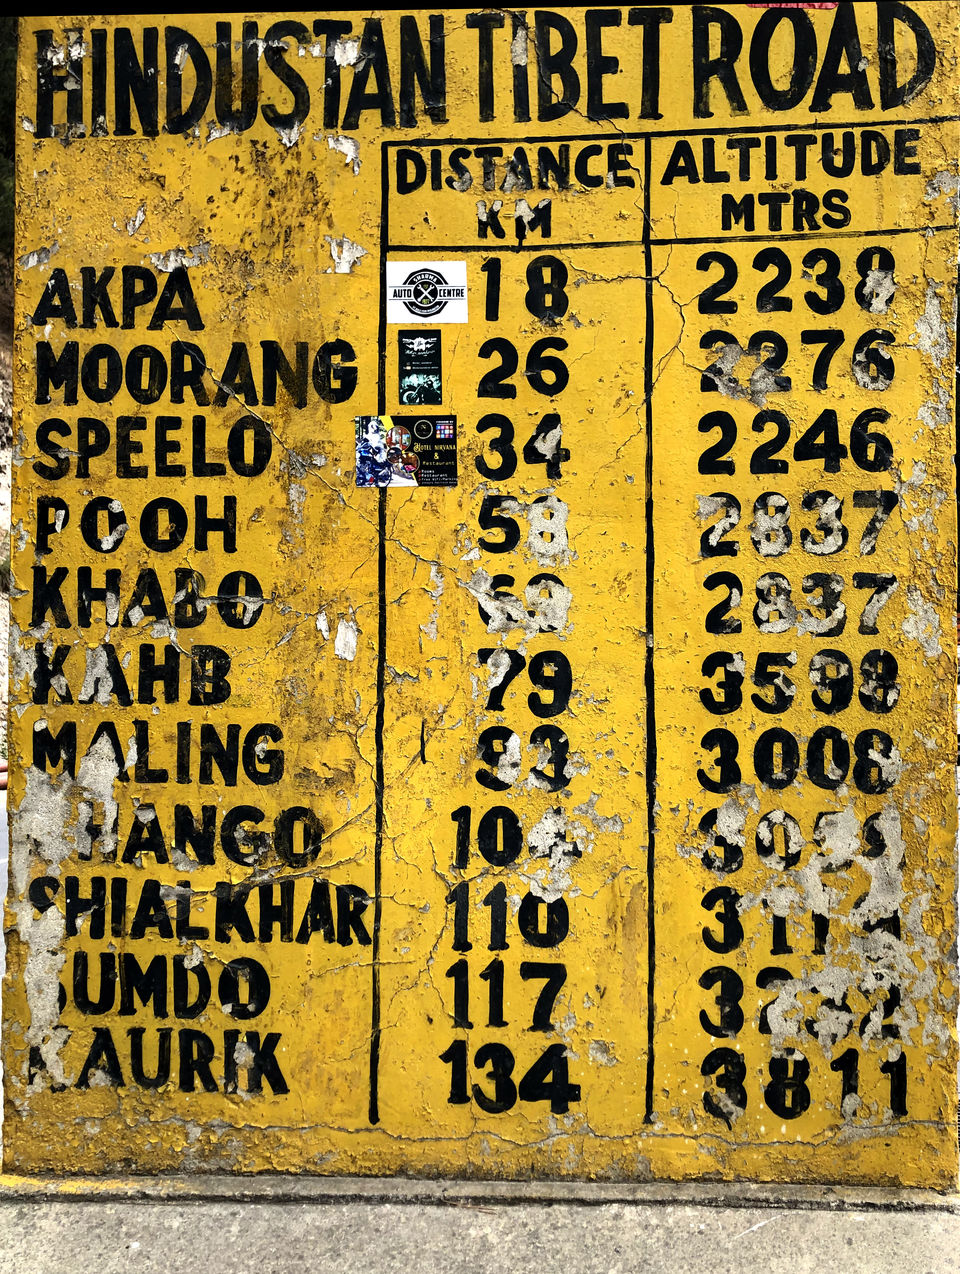 HINDUSTAN TIBET ROAD
DISTANCE KM ALTITUDE MTRS
AKPA 18 2238
MOORANG 26 2276
SPEELO 34 2246
POOH 58 2837
KHABO 69 2837
KAHB 79 3598
MALING 93 3008
HANGO 104
SHIALKHAR 110
SUMDO 117
KAURIK 134 3811
SHARMA
AUTO CENTRE
HOTEL NIRVANA
&
Restaurant
Rooms
Restaurant
Free Wifi/Parking